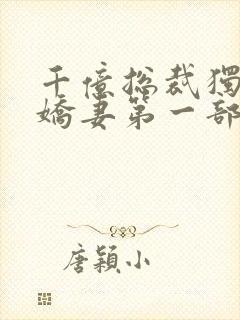 千億總裁獨
嬌妻第一部
唐穎小